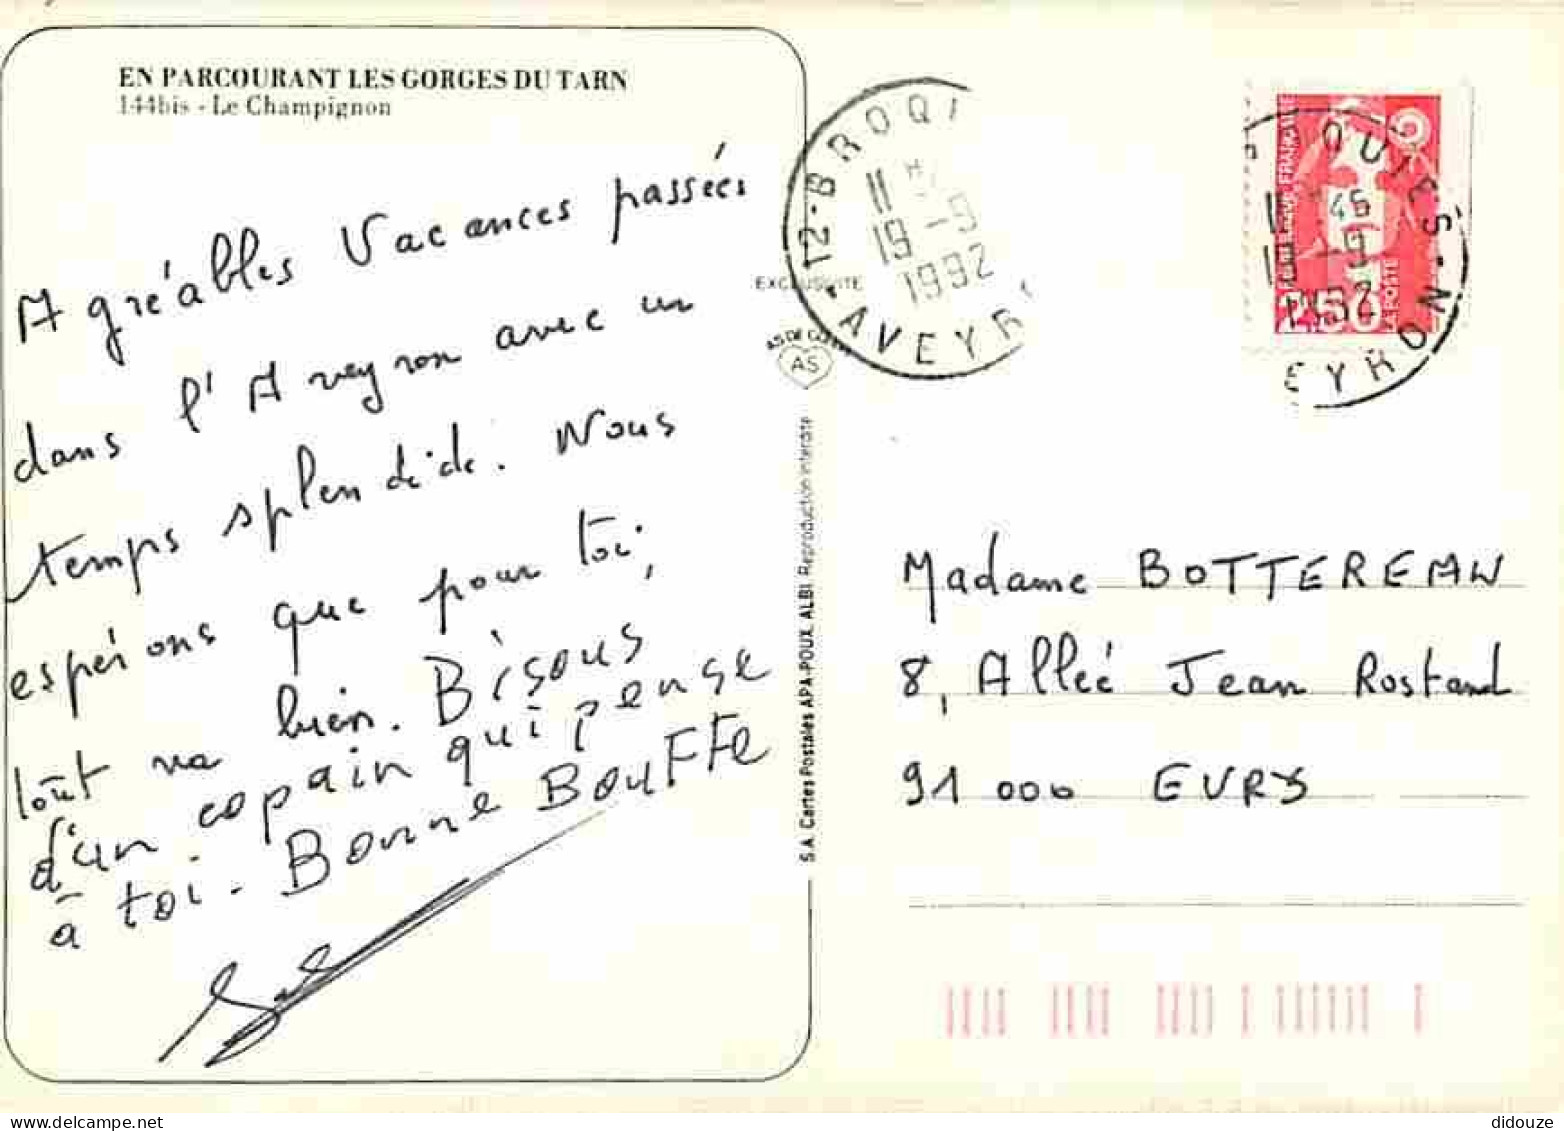 EN PARCOURANT LES GORGES DU TARN
144bis - Le Champignon
Agréables Vacances passées
dans l'Aveyron avec un
temps splendide. Nous
espérons que pour toi,
tout va bien. Bisous
d'un copain qui pense
à toi - Bonne BouFFe
12 - BROQI
11 H
19 - 9
1992
AVEYR
EXCLUSIVITE
AS DE COEUR
AS
S.A. Cartes Postales APA-POUX, ALBI Reproduction interdite
OUIES
11 46
19 - 9
1992
EYRON
FRANÇAISE
2,50
LA POSTE
Madame BOTTEREAU
8, Allée Jean Rostand
91 000 EVRY
didouze